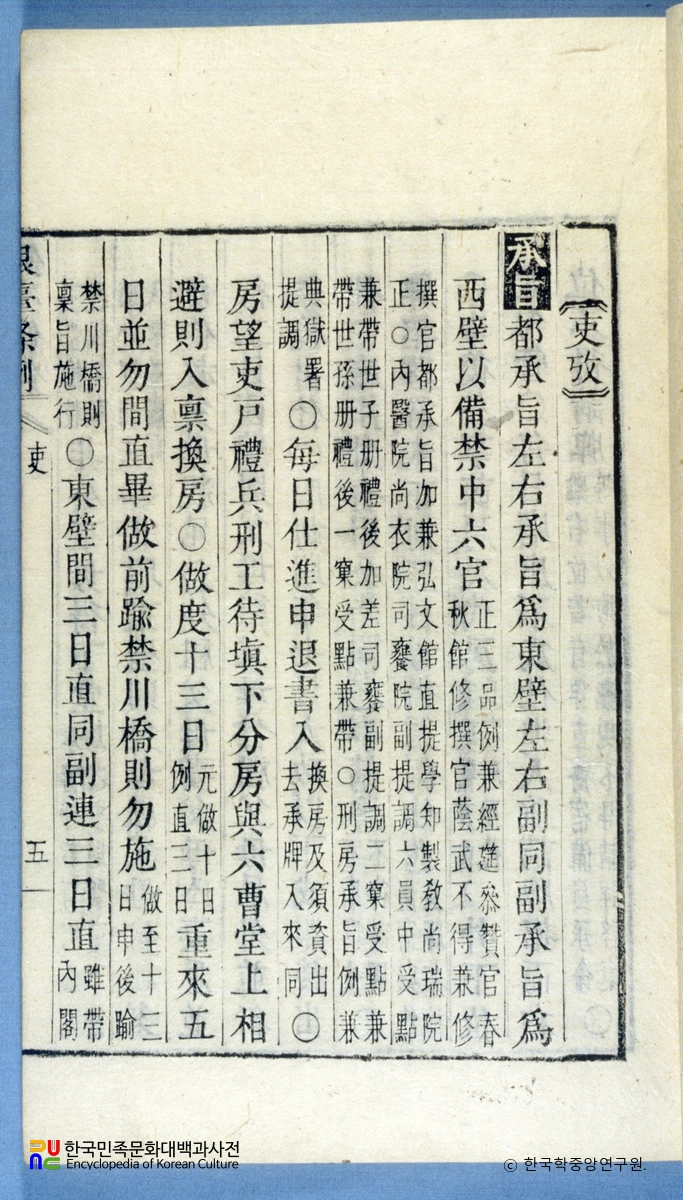 吏攷
承旨都承旨左右承旨爲東壁左右副同副承旨爲
西壁以備禁中六官正三品例兼經筵參贊官春秋館修撰官蔭武不得兼修
撰官都承旨加兼弘文館直提學知製敎尚瑞院正○內醫院尚衣院司饔院副提調六員中受點
兼帶世子册禮後加差司饔副提調二窠受點兼帶世孫册禮後一窠受點兼帶○刑房承旨例兼
典獄署提調○每日仕進申退書入換房及須資出去承牌入來同○
房望吏戶禮兵刑工待塡下分房與六曹堂上相
避則入稟換房○做度十三日元做十日例直三日重來五
日並勿間直畢做前踰禁川橋則勿施做至十三日申後踰
禁川橋則稟旨施行○東壁間三日直同副連三日直雖帶內閣
銀臺條例 吏 五
한국민족문화대백과사전
Encyclopedia of Korean Culture
© 한국학중앙연구원.